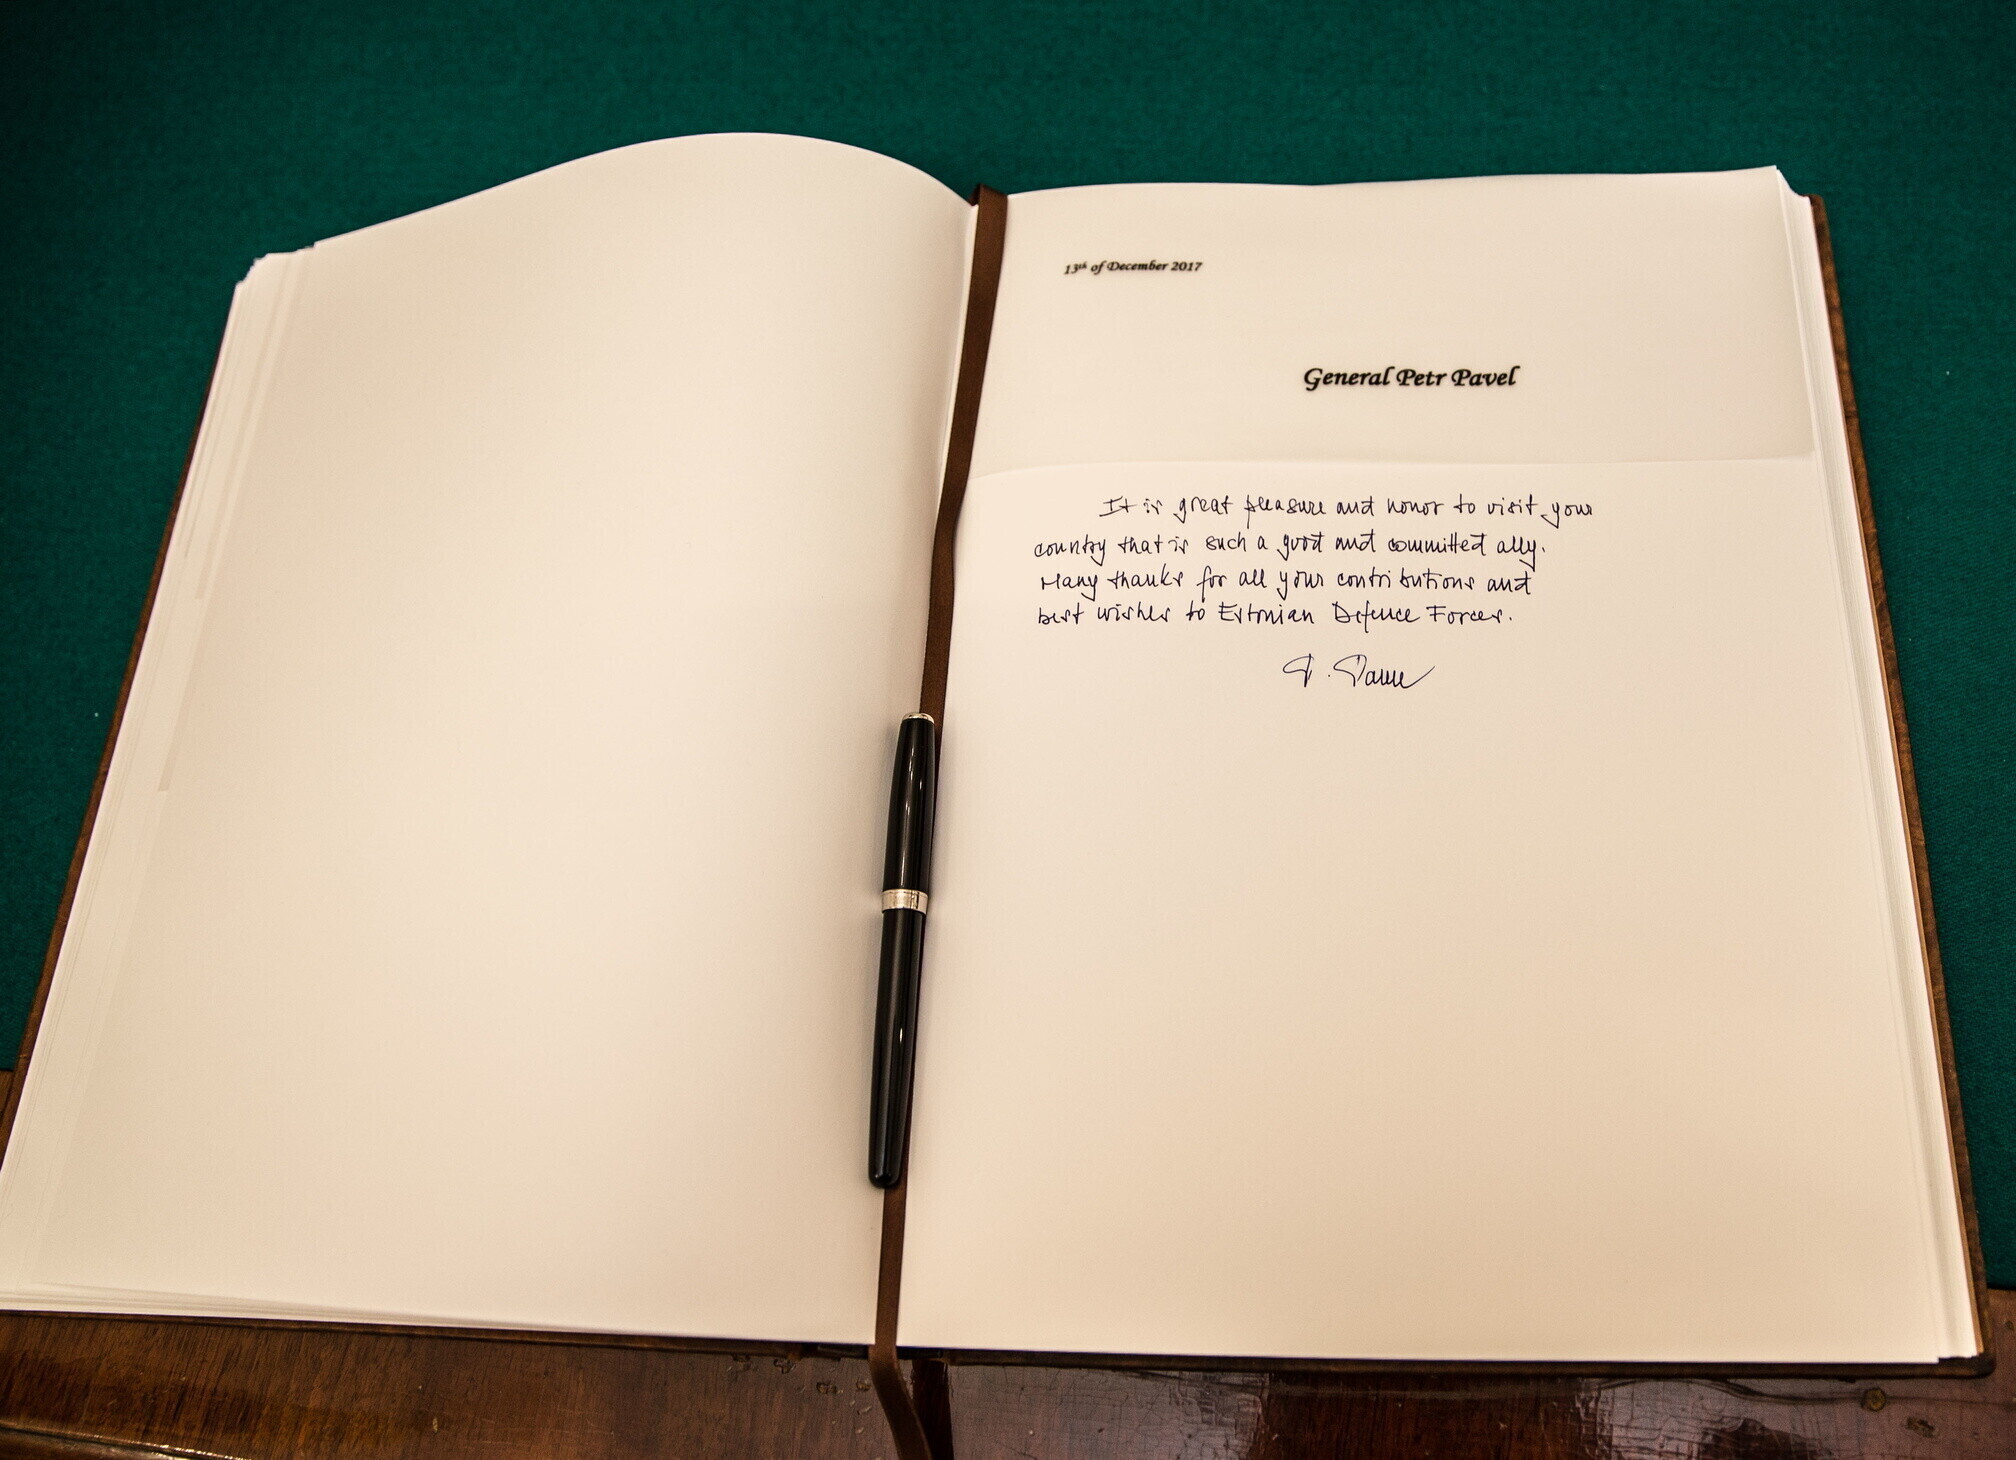 13th of December 2017
General Petr Pavel
It is great pleasure and honor to visit your
country that is such a good and committed ally.
Many thanks for all your contributions and
best wishes to Estonian Defence Forces.
P. Pavel